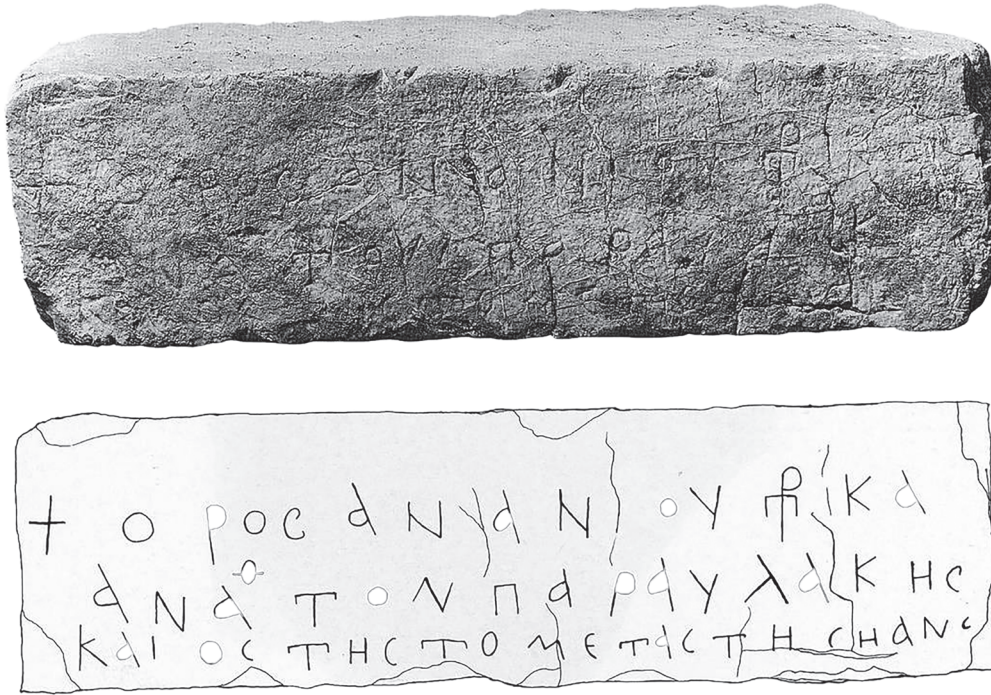 + ΟΡΟCΑΝΑΝΙΟΥΠΡΚΑ
ΑΝΑΘΤΟΝΠΑΡΑΥΛΑΚΗC
ΚΑΙΟCΤΗCΤΟΜΕΤΑCΤΗCΗΑΝC